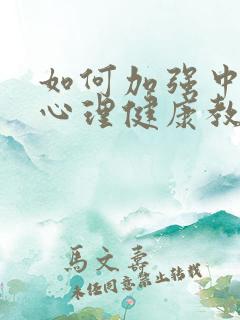 如何加强中
心理健康教
馬文壽
未经同意禁止转载